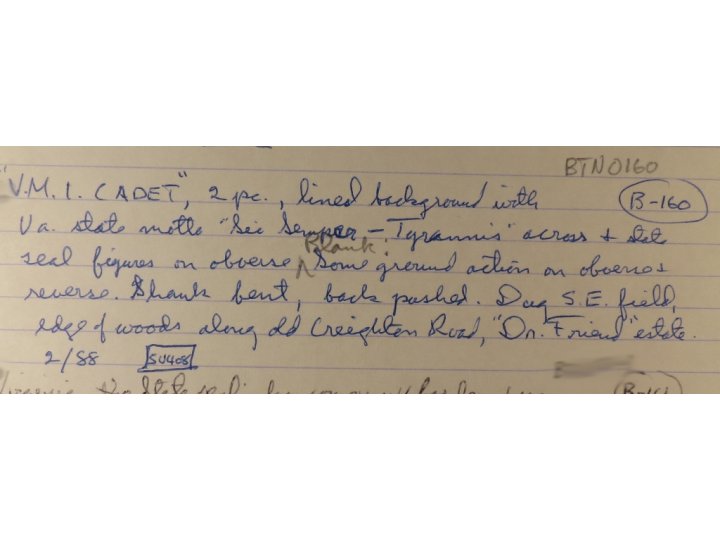 BTN0160
"V.M.I. CADET", 2 pc., lined background with B-160
Va. state motto "Sic Semper - Tyrannis" across & state
Blank.
seal figures on obverse. Some ground action on obverse &
reverse. Shank bent, back pushed. Dug S.E. field,
edge of woods along old Creighton Road, "Dr. Friend" estate.
2/88 SU408